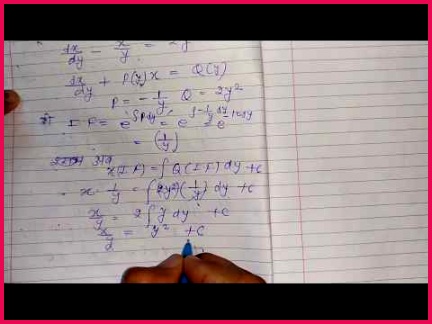 dx/dy - x/y = 2y
dx/dy + P(y)x = Q(y)
P = -1/y Q = 2y²
I F = e^∫Pdy = e^∫-1/y dy = e
= (1/y)
अतः
x(I F) = ∫ Q (I F) dy + c
x · 1/y = ∫(2y²)(1/y) dy + c
x/y = 2 ∫ y dy + c
x/y = y² + c